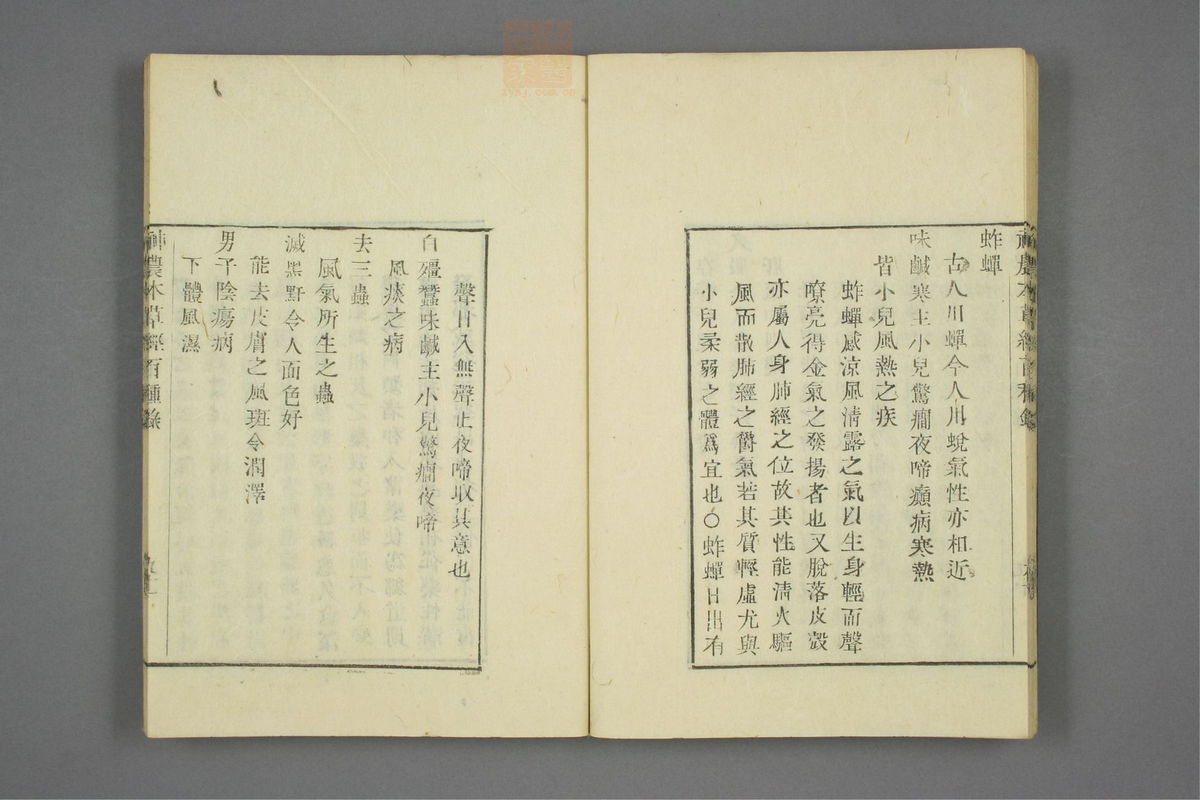 神農本草經百種錄
蚱蟬
古人用蟬今人用蛻氣性亦相近
味鹹寒主小兒驚癇夜啼癲病寒熱
皆小兒風熱之疾
蚱蟬感涼風清露之氣以生身輕而聲
嘹亮得金氣之發揚者也又脫落皮殼
亦屬人身肺經之位故其性能清火驅
風而散肺經之鬱氣若其質輕虛尤與
小兒柔弱之體爲宜也○蚱蟬日出有
聲日入無聲止夜啼取其意也
白殭蠶味鹹主小兒驚癇夜啼
風痰之病
去三蟲
風氣所生之蟲
滅黑䵟令人面色好
能去皮膚之風斑令潤澤
男子陰瘍病
下體風濕
神農本草經百種錄